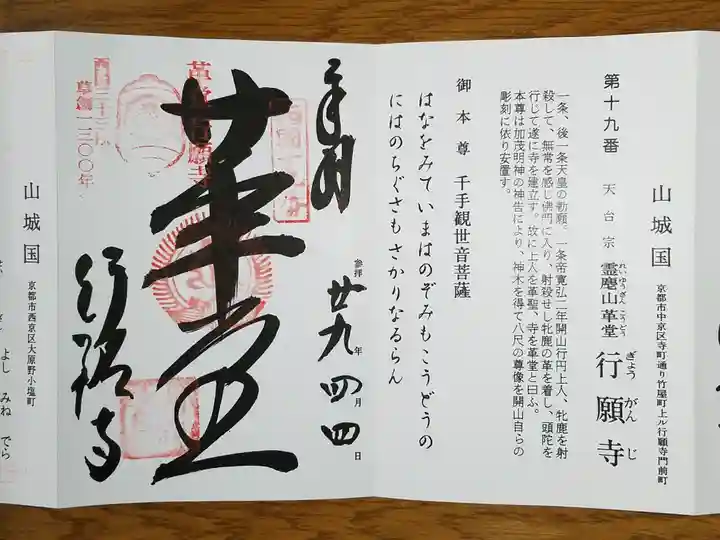 山城国
京都市中京区寺町通り竹屋町上ル行願寺門前町
第十九番 天台宗 霊麀山革堂 行願寺
れいゆうざんこうどう
ぎょうがんじ
一条、後一条天皇の勅願。一条帝寛弘二年開山行円上人、牝鹿を射
殺して、無常を感じ佛門に入り、射殺せし牝鹿の革を着し、頭陀を
行じて遂に寺を建立す。故に上人を革聖、寺を革堂と曰ふ。
本尊は加茂明神の神告により、神木を得て八尺の尊像を開山自らの
彫刻に依り安置す。
御本尊 千手観世音菩薩
はなをみていまはのぞみもこうどうの
にはのちぐさもさかりなるらん
奉拝
参拝 廿九年四月四日
革堂
行願寺
革堂行願寺
草創一三〇〇年
山城国
京都市西京区大原野小塩町
よしみねでら